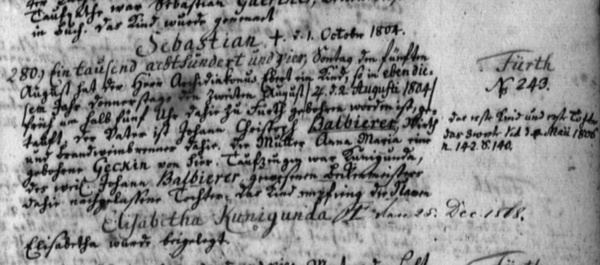 Taufpathe war Sebastian
in Buch. Das Kind wurde genennt
Sebastian. † d. 1. October 1804.
280) Ein tausend achthundert und vier, Sontag den fünften
August hat der Herr Archidiakonus ein Kind, so in eben die-
sem Jahr Donnerstags den zweiten August /: d. 2. Augusti 1804 :/
früh um halb fünf Uhr dahie zu Fürth gebohren worden ist, ge-
tauft. Der Vater ist Johann Christoph Balbierer, Wirth
und Brandweinbrenner dahie. Die Mutter Anna Maria eine
gebohrne Geckin von hier. Taufzeugin war Kunigunda,
des weil. Johann Balbierer, gewesenen Beckenmeisters
dahie nachgelassene Tochter. Das Kind empfieng die Namen
Elisabetha Kunigunda † den 25. Dec. 1868.
Elisabetha wurde beigelegt.
Fürth
N. 243.
das erste Kind und erste Tochter
das zweite s. d. Maii 1806
n. 142. S. 140.
Fürth